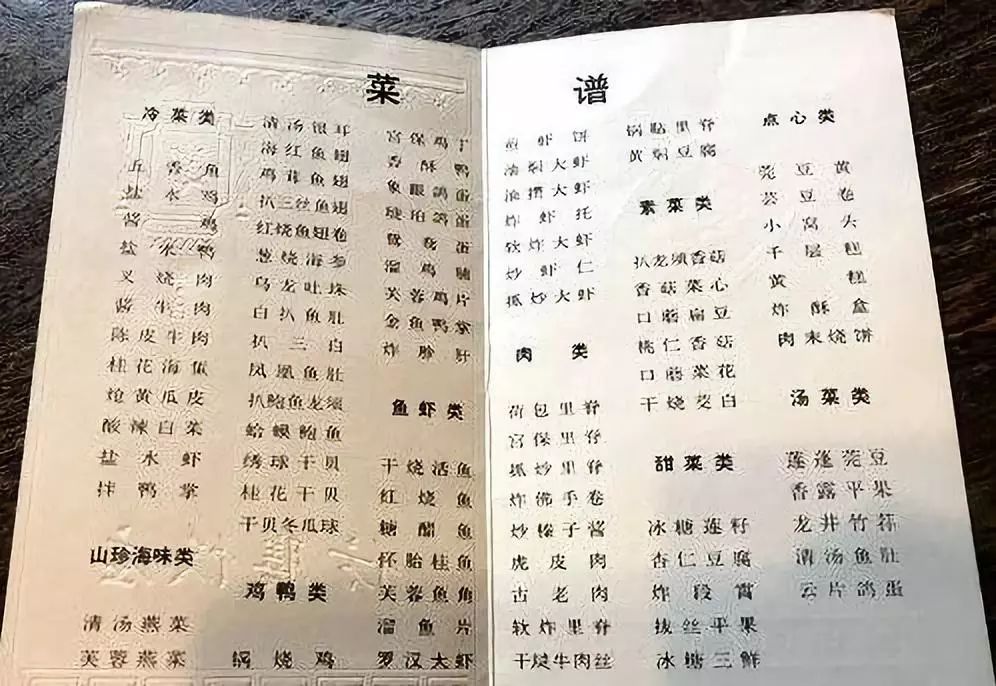 菜谱
冷菜类
五香鱼
盐水鸡
酱鸡
盐水鸭
叉烧肉
酱牛肉
陈皮牛肉
桂花海蜇
炝黄瓜皮
酸辣白菜
盐水虾
拌鸭掌
山珍海味类
清汤燕菜
芙蓉燕菜
清汤银耳
海红鱼翅
鸡茸鱼翅
扒三丝鱼翅
红烧鱼翅卷
葱烧海参
乌龙吐珠
白扒鱼肚
扒三白
凤凰鱼肚
扒鲍鱼龙须
蛤蟆鲍鱼
绣球干贝
桂花干贝
干贝冬瓜球
鸡鸭类
锅烧鸡
宫保鸡丁
香酥鸭
象眼鸽蛋
琥珀鸽蛋
鸳鸯蛋
溜鸡脯
芙蓉鸡片
金鱼鸭掌
炸胗肝
鱼虾类
干烧活鱼
红烧鱼
糖醋鱼
怀胎桂鱼
芙蓉鱼角
溜鱼片
罗汉大虾
煎虾饼
油焖大虾
炸虾托
软炸大虾
炒虾仁
抓炒大虾
肉类
荷包里脊
宫保里脊
抓炒里脊
炸佛手卷
炒榛子酱
虎皮肉
古老肉
软炸里脊
干煸牛肉丝
锅贴里脊
黄焖豆腐
素菜类
扒龙须香菇
香菇菜心
口蘑扁豆
桃仁香菇
口蘑菜花
干烧茭白
甜菜类
冰糖莲籽
杏仁豆腐
炸段霄
拔丝平果
冰糖三鲜
点心类
莞豆黄
芸豆卷
小窝头
千层糕
黄糕
炸酥盒
肉末烧饼
汤菜类
莲蓬莞豆
香露平果
龙井竹荪
清汤鱼肚
云片鸽蛋